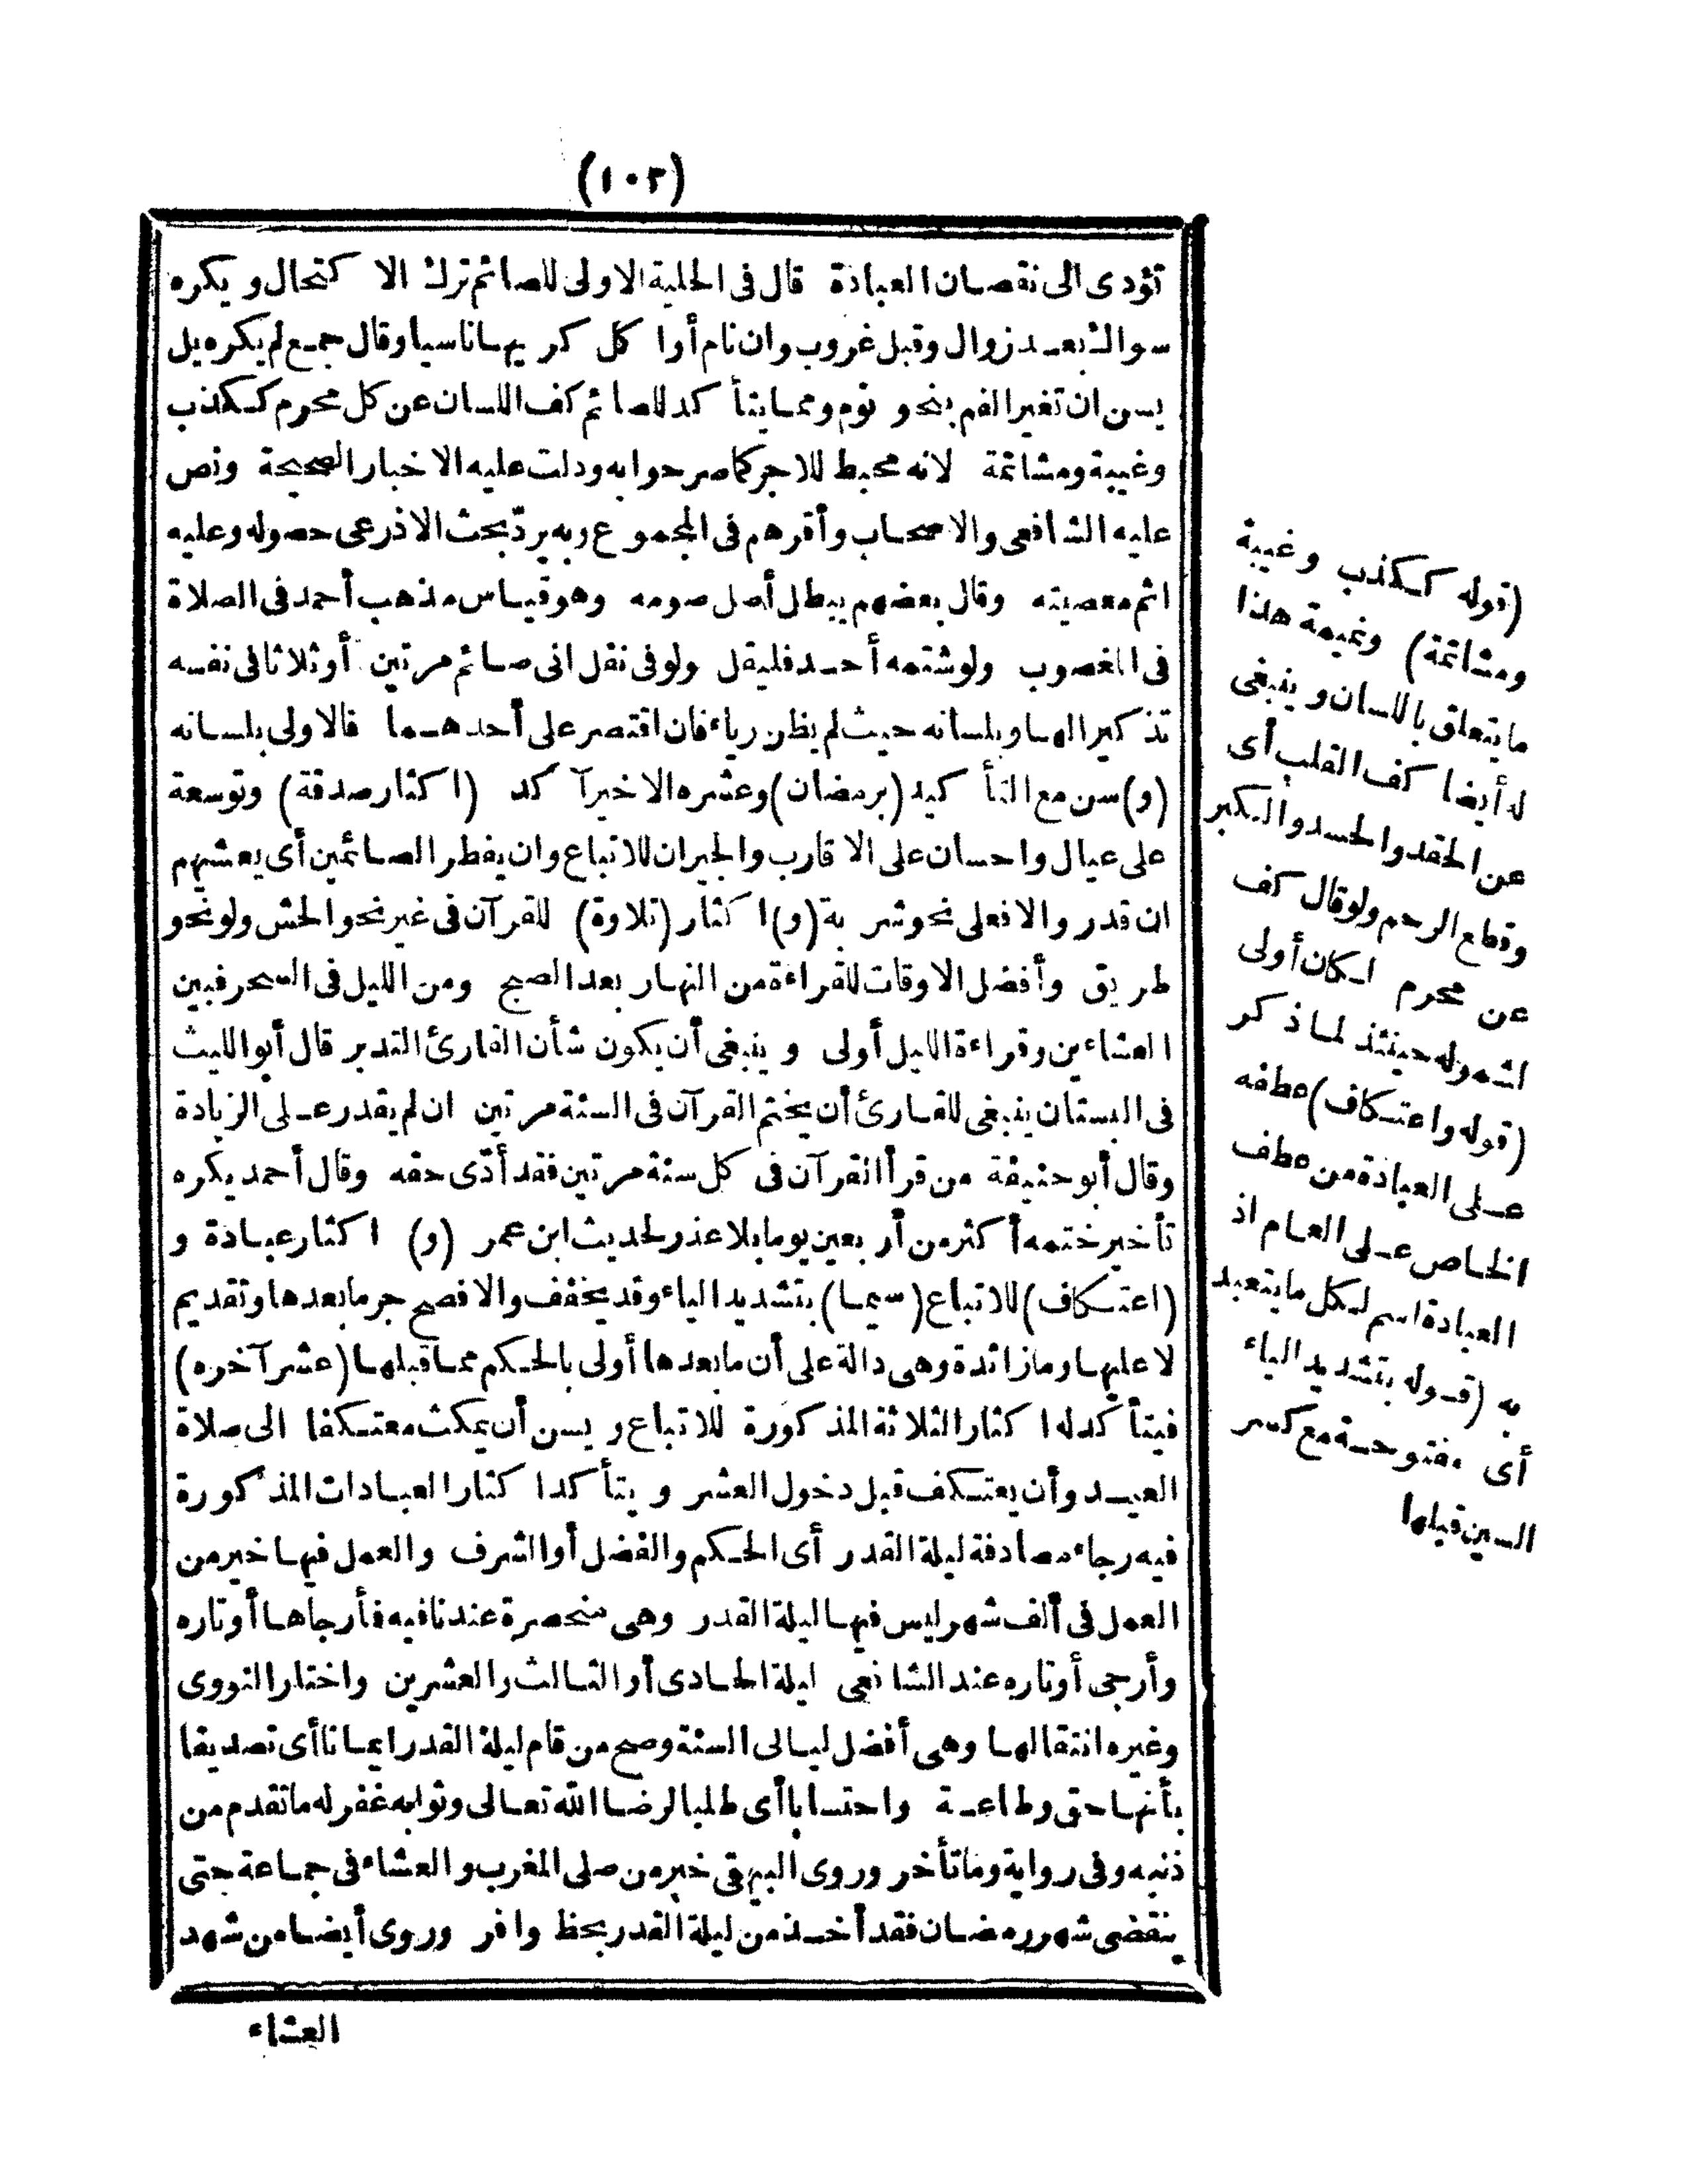 (١٠٣)
تؤدى الى نقصان العبادة قال فى الحلية الاولى للصائم ترك الاكتحال ويكره
سواك بعد زوال وقبل غروب وان نام أو أكل كريها ناسيا وقال جمع لم يكره بل
يسن ان تغير الفم بنحو نوم ومما يتأكد للصائم كف اللسان عن كل محرم ككذب
وغيبة ومشاتمة لانه محبط للاجر كما صرحوا به ودلت عليه الاخبار الصحيحة ونص
عليه الشافعى والاصحاب وأقرهم فى المجموع وبه يردّ بحث الاذرعى حصوله وعليه
اثم معصيته وقال بعضهم يبطل أصل صومه وهو قياس مذهب أحمد فى الصلاة
فى المغصوب ولو شتمه أحد فليقل ولو فى نفل انى صائم مرتين أو ثلاثا فى نفسه
تذكيرا لها وبلسانه حيث لم يظن رياء فان اقتصر على أحدهما فالاولى بلسانه
(و) سن مع التأكيد (برمضان) وعشره الاخير آكد (اكثار صدقة) وتوسعة
على عيال واحسان على الاقارب والجيران للاتباع وان يفطر الصائمين أى يعشيهم
ان قدر والا فعلى نحو شربة (و) اكثار (تلاوة) للقرآن فى غير نحو الحش ولو نحو
طريق وأفضل الاوقات للقراءة من النهار بعد الصبح ومن الليل فى السحر فبين
العشاءين وقراءة الليل أولى وينبغى أن يكون شأن القارئ التدبر قال أبو الليث
فى البستان ينبغى للقارئ أن يختم القرآن فى السنة مرتين ان لم يقدر على الزيادة
وقال أبو حنيفة من قرأ القرآن فى كل سنة مرتين فقد أدّى حقه وقال أحمد يكره
تأخير ختمه أكثر من أربعين يوما بلا عذر لحديث ابن عمر (و) اكثار عبادة و
(اعتكاف) للاتباع (سيما) بتشديد الياء وقد يخفف والافصح جر ما بعدها وتقديم
لا عليها وما زائدة وهى دالة على أن ما بعدها أولى بالحكم مما قبلها (عشر آخره)
فيتأكد له اكثار الثلاثة المذكورة للاتباع ويسن أن يمكث معتكفا الى صلاة
العيد وأن يعتكف قبل دخول العشر ويتأكد اكثار العبادات المذكورة
فيه رجاء مصادفة ليلة القدر أى الحكم والفضل أو الشرف والعمل فيها خير من
العمل فى ألف شهر ليس فيها ليلة القدر وهى منحصرة عندنا فيه فأرجاها أوتاره
وأرجى أوتاره عند الشافعى ليلة الحادى أو الثالث والعشرين واختار النووى
وغيره انتقالها وهى أفضل ليالى السنة وصح من قام ليلة القدر ايمانا أى تصديقا
بأنها حق وطاعة واحتسابا أى طلبا لرضا الله تعالى وثوابه غفر له ما تقدم من
ذنبه وفى رواية وما تأخر وروى البيهقى خبر من صلى المغرب والعشاء فى جماعة حتى
ينقضى شهر رمضان فقد أخذ من ليلة القدر بحظ وافر وروى أيضا من شهد
العشاء
(قوله ككذب وغيبة
ومشاتمة) ونميمة هذا
ما يتعلق باللسان وينبغى
له أيضا كف القلب أى
عن الحقد والحسد والكبر
وقطع الرحم ولو قال كف
عن محرم لكان أولى
لشموله حينئذ لما ذكر
(قوله واعتكاف) عطفه
على العبادة من عطف
الخاص على العام اذ
العبادة اسم لكل ما يتعبد
به (قوله بتشديد الياء
أى مفتوحة مع كسر
السين قبلها